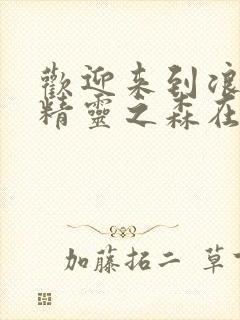 歡迎来到浪
精靈之森在
加藤拓二 草